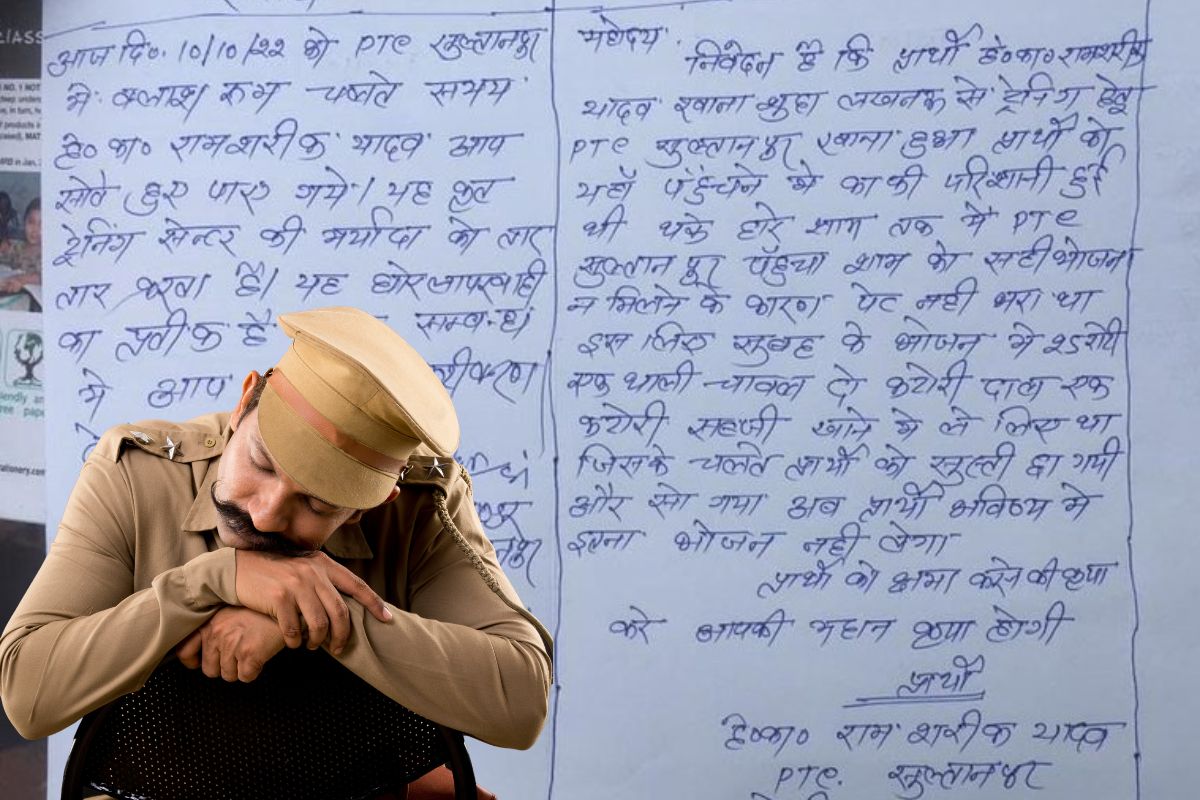 आज दि०. 10/10/22 को PTC सुल्तानपुर
में क्लाश रूम चलते समय
हे० का० रामशरीक यादव आप
सोते हुए पाए गये। यह कृत
ट्रेनिंग सेन्टर की मर्यादा को तार
तार करता है। यह घोर लापरवाही
का प्रतीक है सम्बन्ध
मे आप
महोदय.
निवेदन है कि प्रार्थी हे०का० रामशरीक
यादव रवाना शुदा लखनऊ से ट्रेनिंग हेतु
PTC सुल्तानपुर रवाना हुआ प्रार्थी को
यहाँ पंहुचने मे काफी परिशानी हुई
थी थके हारे शाम तक मै PTC
सुल्तानपुर पँहुचा शाम को सही भोजन
न मिलने के कारण पेट नही भरा था
इस लिए सुबह के भोजन मे 25 रोटी
एक थाली चावल दो कटोरी दाल एक
कटोरी सब्जी खाने मे ले लिए था
जिसके चलते प्रार्थी को सुस्ती छा गयी
और सो गया अब प्रार्थी भविष्य मे
इतना भोजन नही लेगा
प्रार्थी को क्षमा करने की कृपा
करे आपकी महान कृपा होगी
प्रार्थी
हे०का० राम शरीक यादव
PTC. सुल्तानपुर